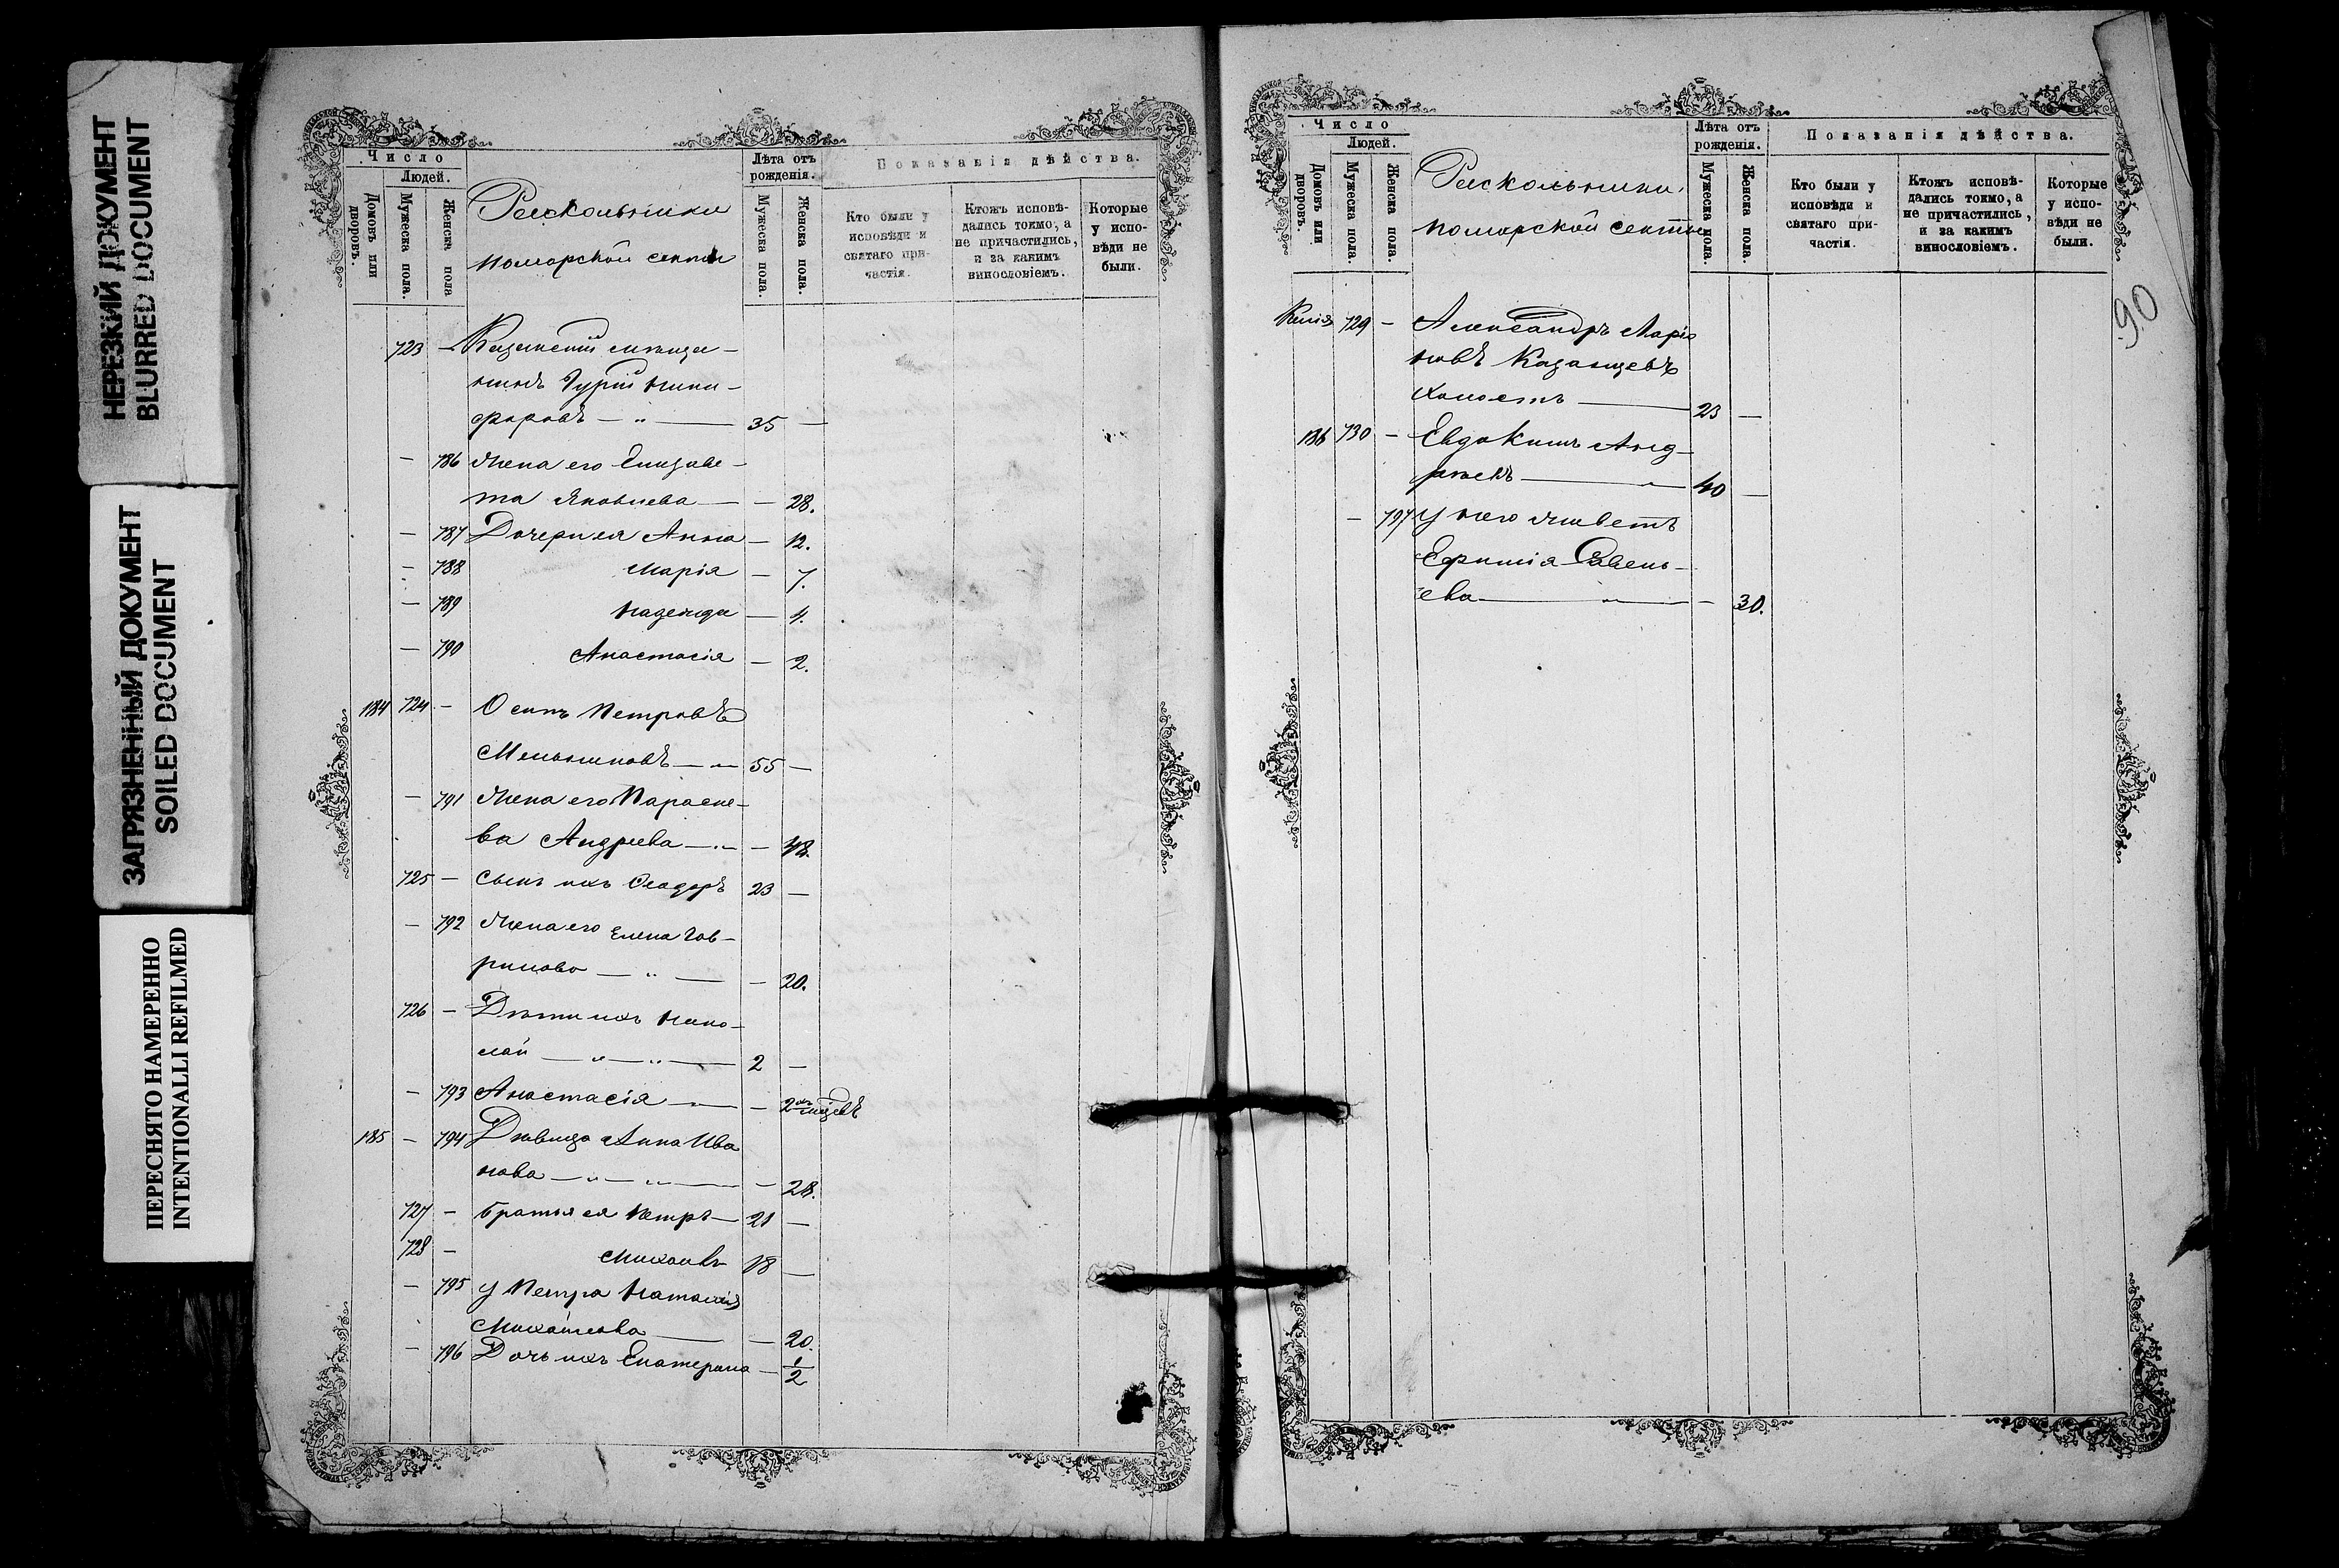 НЕРЕЗКИЙ ДОКУМЕНТ
BLURRED DOCUMENT
ЗАГРЯЗНЕННЫЙ ДОКУМЕНТ
SOILED DOCUMENT
ПЕРЕСНЯТО НАМЕРЕННО
INTENTIONALLI REFILMED
Число
Людей.
Домовъ или дворовъ.
Мужеска пола.
Женска пола
Раскольники
поморской секты
Лѣта отъ рожденія.
Мужеска пола.
Женска пола.
Показанія дѣйства.
Кто были у
исповѣди и
святаго при-
частія.
Ктожъ исповѣ-
дались токмо, а
не причастились,
и за какимъ
винословіемъ.
Которые
у испо-
вѣди не
были.
723 — Казанскій мѣща-
нинъ Гурій Ники-
форовъ — „ — 35 —
— 786 Жена его Елизаве-
та Яковлева — — 28.
— 787 Дочери ея Анна — 12.
— 788 Марія — 7.
— 789 Надежда — 4.
— 790 Анастасія — 2.
184 724 — Осипъ Петровъ
Мельниковъ — „ 55 —
— 791 Жена его Параске-
ва Андреева — „ — 48.
725 — Сынъ ихъ Ѳеодоръ 23 —
— 792 Жена его Елена Гав-
рилова — „ — — 20.
726 — Дѣти ихъ Нико-
лай — „ — „ — 2 —
— 793 Анастасія — „ — 2
185 — 794 Дѣвица Анна Ива
нова — „ — „ — — 28.
727 — Братья ея Петръ — 21 —
728 — Михаилъ 18 —
— 795 У Петра Наталія
Михайлова — — 20.
— 796 Дочь ихъ Екатерина — 1/2
90
Число
Людей.
Домовъ или дворовъ.
Мужеска пола.
Женска пола.
Раскольники
поморской секты
Лѣта отъ рожденія.
Мужеска пола.
Женска пола.
Показанія дѣйства.
Кто были у
исповѣди и
святаго при-
частія.
Ктожъ исповѣ-
дались токмо, а
не причастились,
и за какимъ
винословіемъ.
Которые
у испо-
вѣди не
были.
Келія 729 — Александръ Ларіо
новъ Казанцевъ
холостъ — 23 —
186 730 — Евдокимъ Анд-
реевъ — „ — 40 —
— 797 У него живетъ
Ефимія Савель-
ева — „ — — 30.